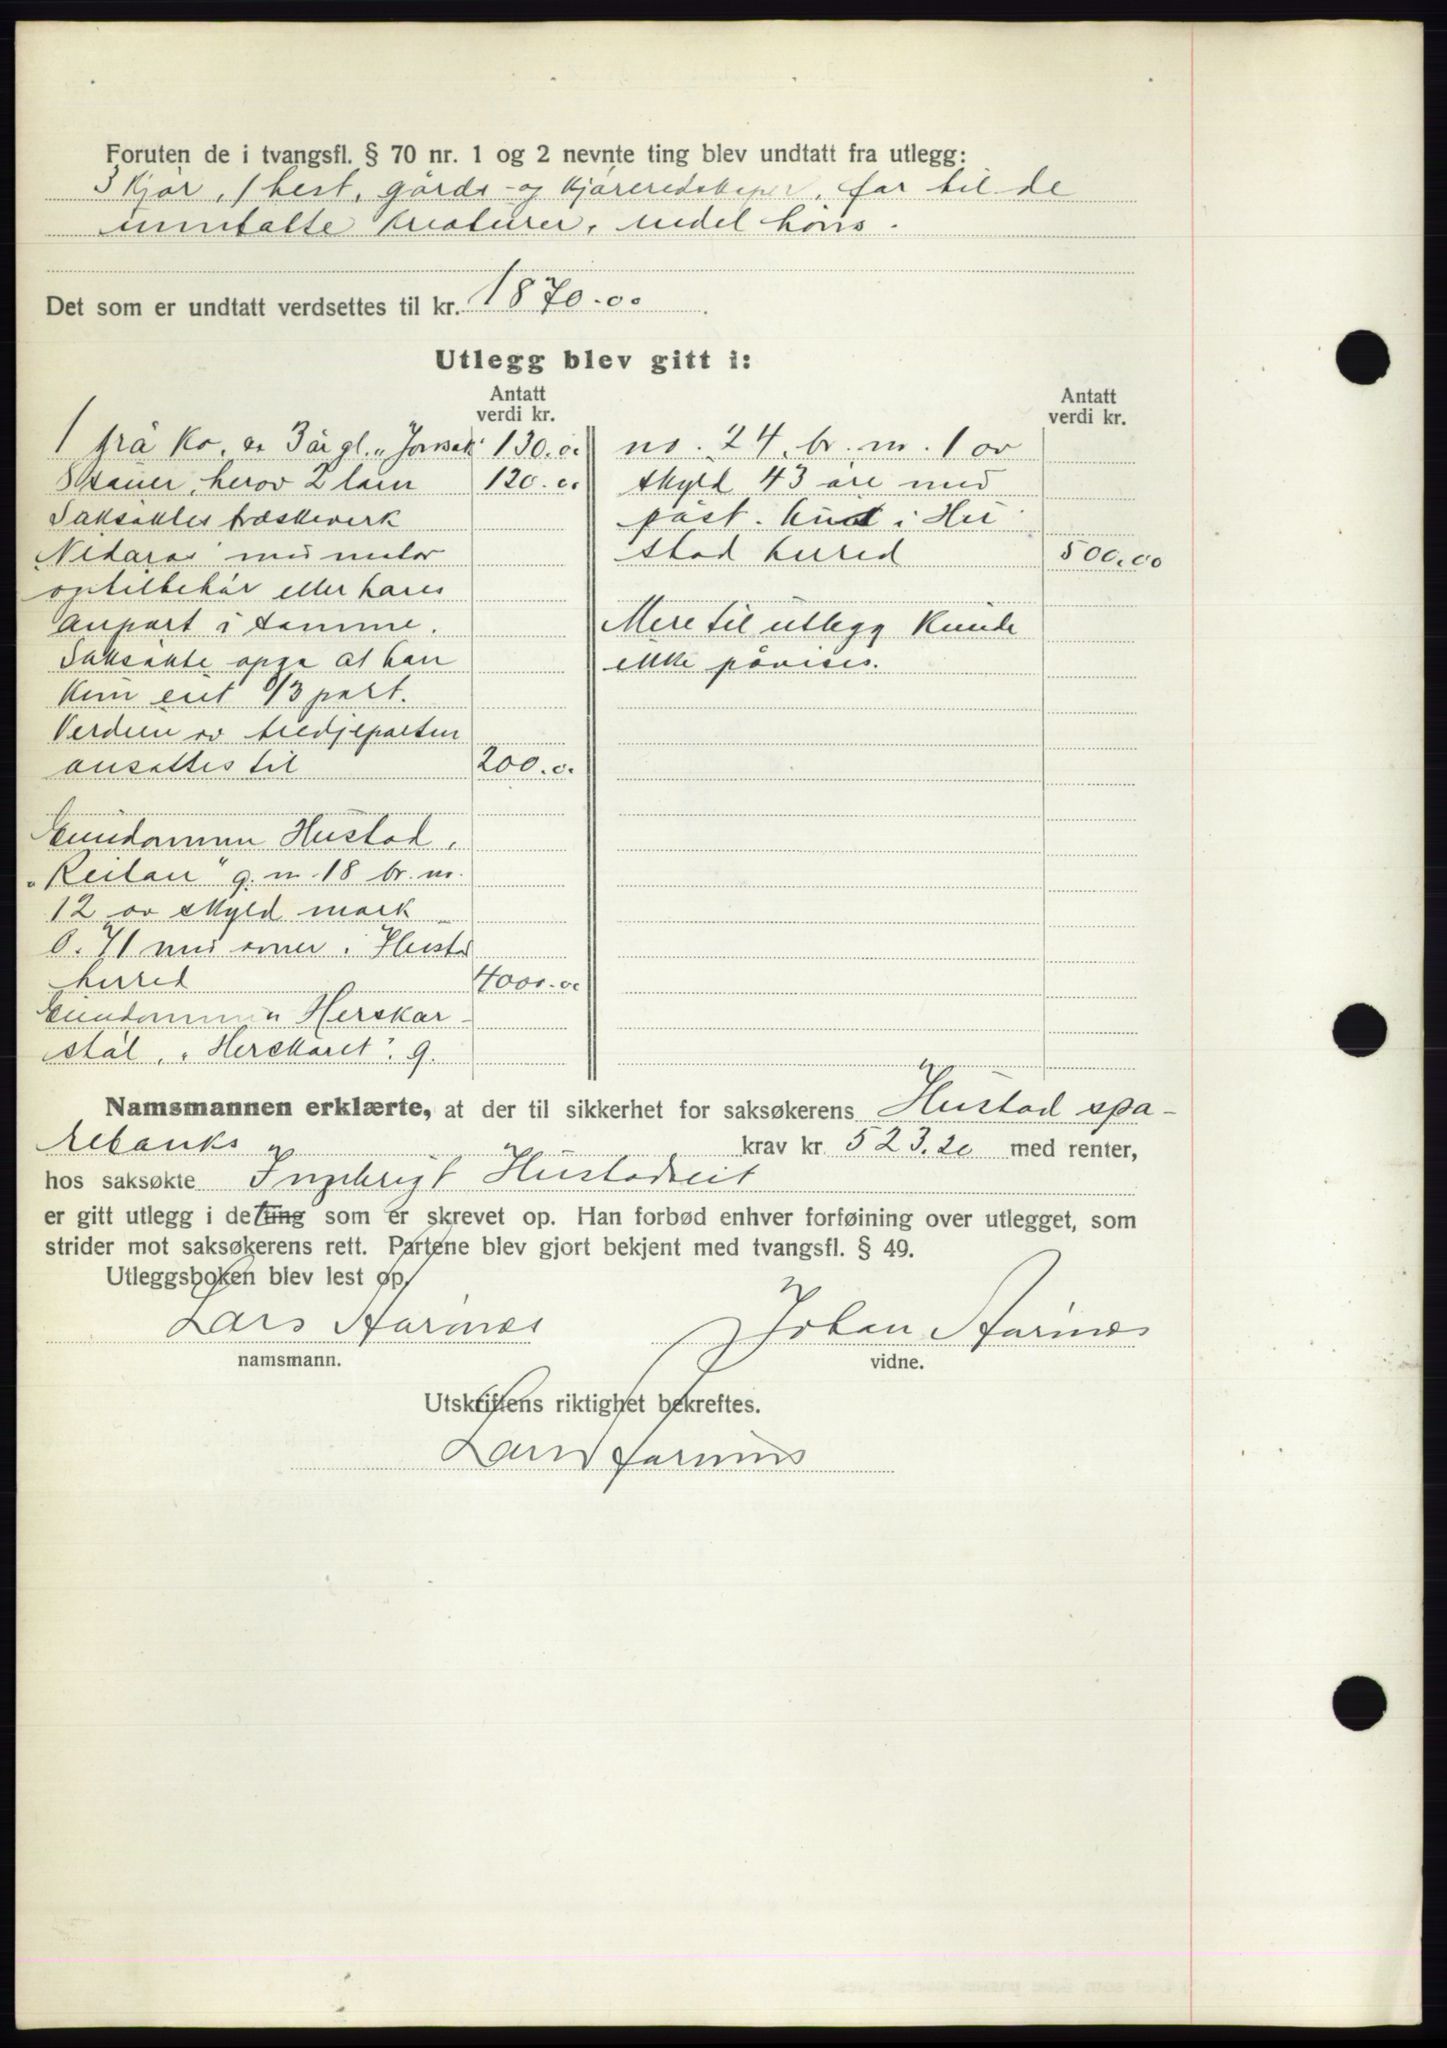 Foruten de i tvangsfl. § 70 nr. 1 og 2 nevnte ting blev undtatt fra utlegg:
3 kjør, 1 hest, gårds- og kjøreredskaper, for til de
unntatte kreaturer, endel høns.
Det som er undtatt verdsettes til kr. 1870.00.
Utlegg blev gitt i:
Antatt verdi kr.
1 grå ko, ca 3 år gl. 130.00
8 sauer, herov 2 lam 120.00
Saksøktes træskeverk
"Nidaros" med motor
og tilbehør eller hans
anpart i samme.
Saksøkte opga at han
kun eiet 1/3 part.
Verdien av tredjeparten
ansattes til 200.00
Eiendommen Hustad,
"Reitan" g. nr. 18 br. nr.
12 av skyld mark
0.71 med avner i Hustad
herred 4000.00
Eiendommen Herskar-
støl, "Herskaret". g.
Antatt verdi kr.
no. 24, br. nr. 1 av
skyld 43 øre med
påst. hus i Hu
stad herred 500.00
Mere til utlegg kunde
ikke påvises.
Namsmannen erklærte, at der til sikkerhet for saksøkerens Hustad spa-
rebanks krav kr. 523.20 med renter,
hos saksøkte Ingebrigt Hustadreit
er gitt utlegg i det ting som er skrevet op. Han forbød enhver forføining over utlegget, som
strider mot saksøkerens rett. Partene blev gjort bekjent med tvangsfl. § 49.
Utleggsboken blev lest op.
Lars Aarønes Johan Aarønes
namsmann. vidne.
Utskriftens riktighet bekreftes.
Lars Aarønes